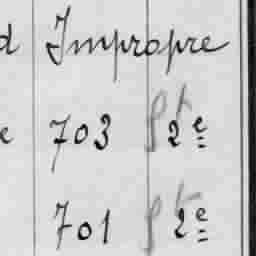 d Impropre
e 703 2e
701 2e